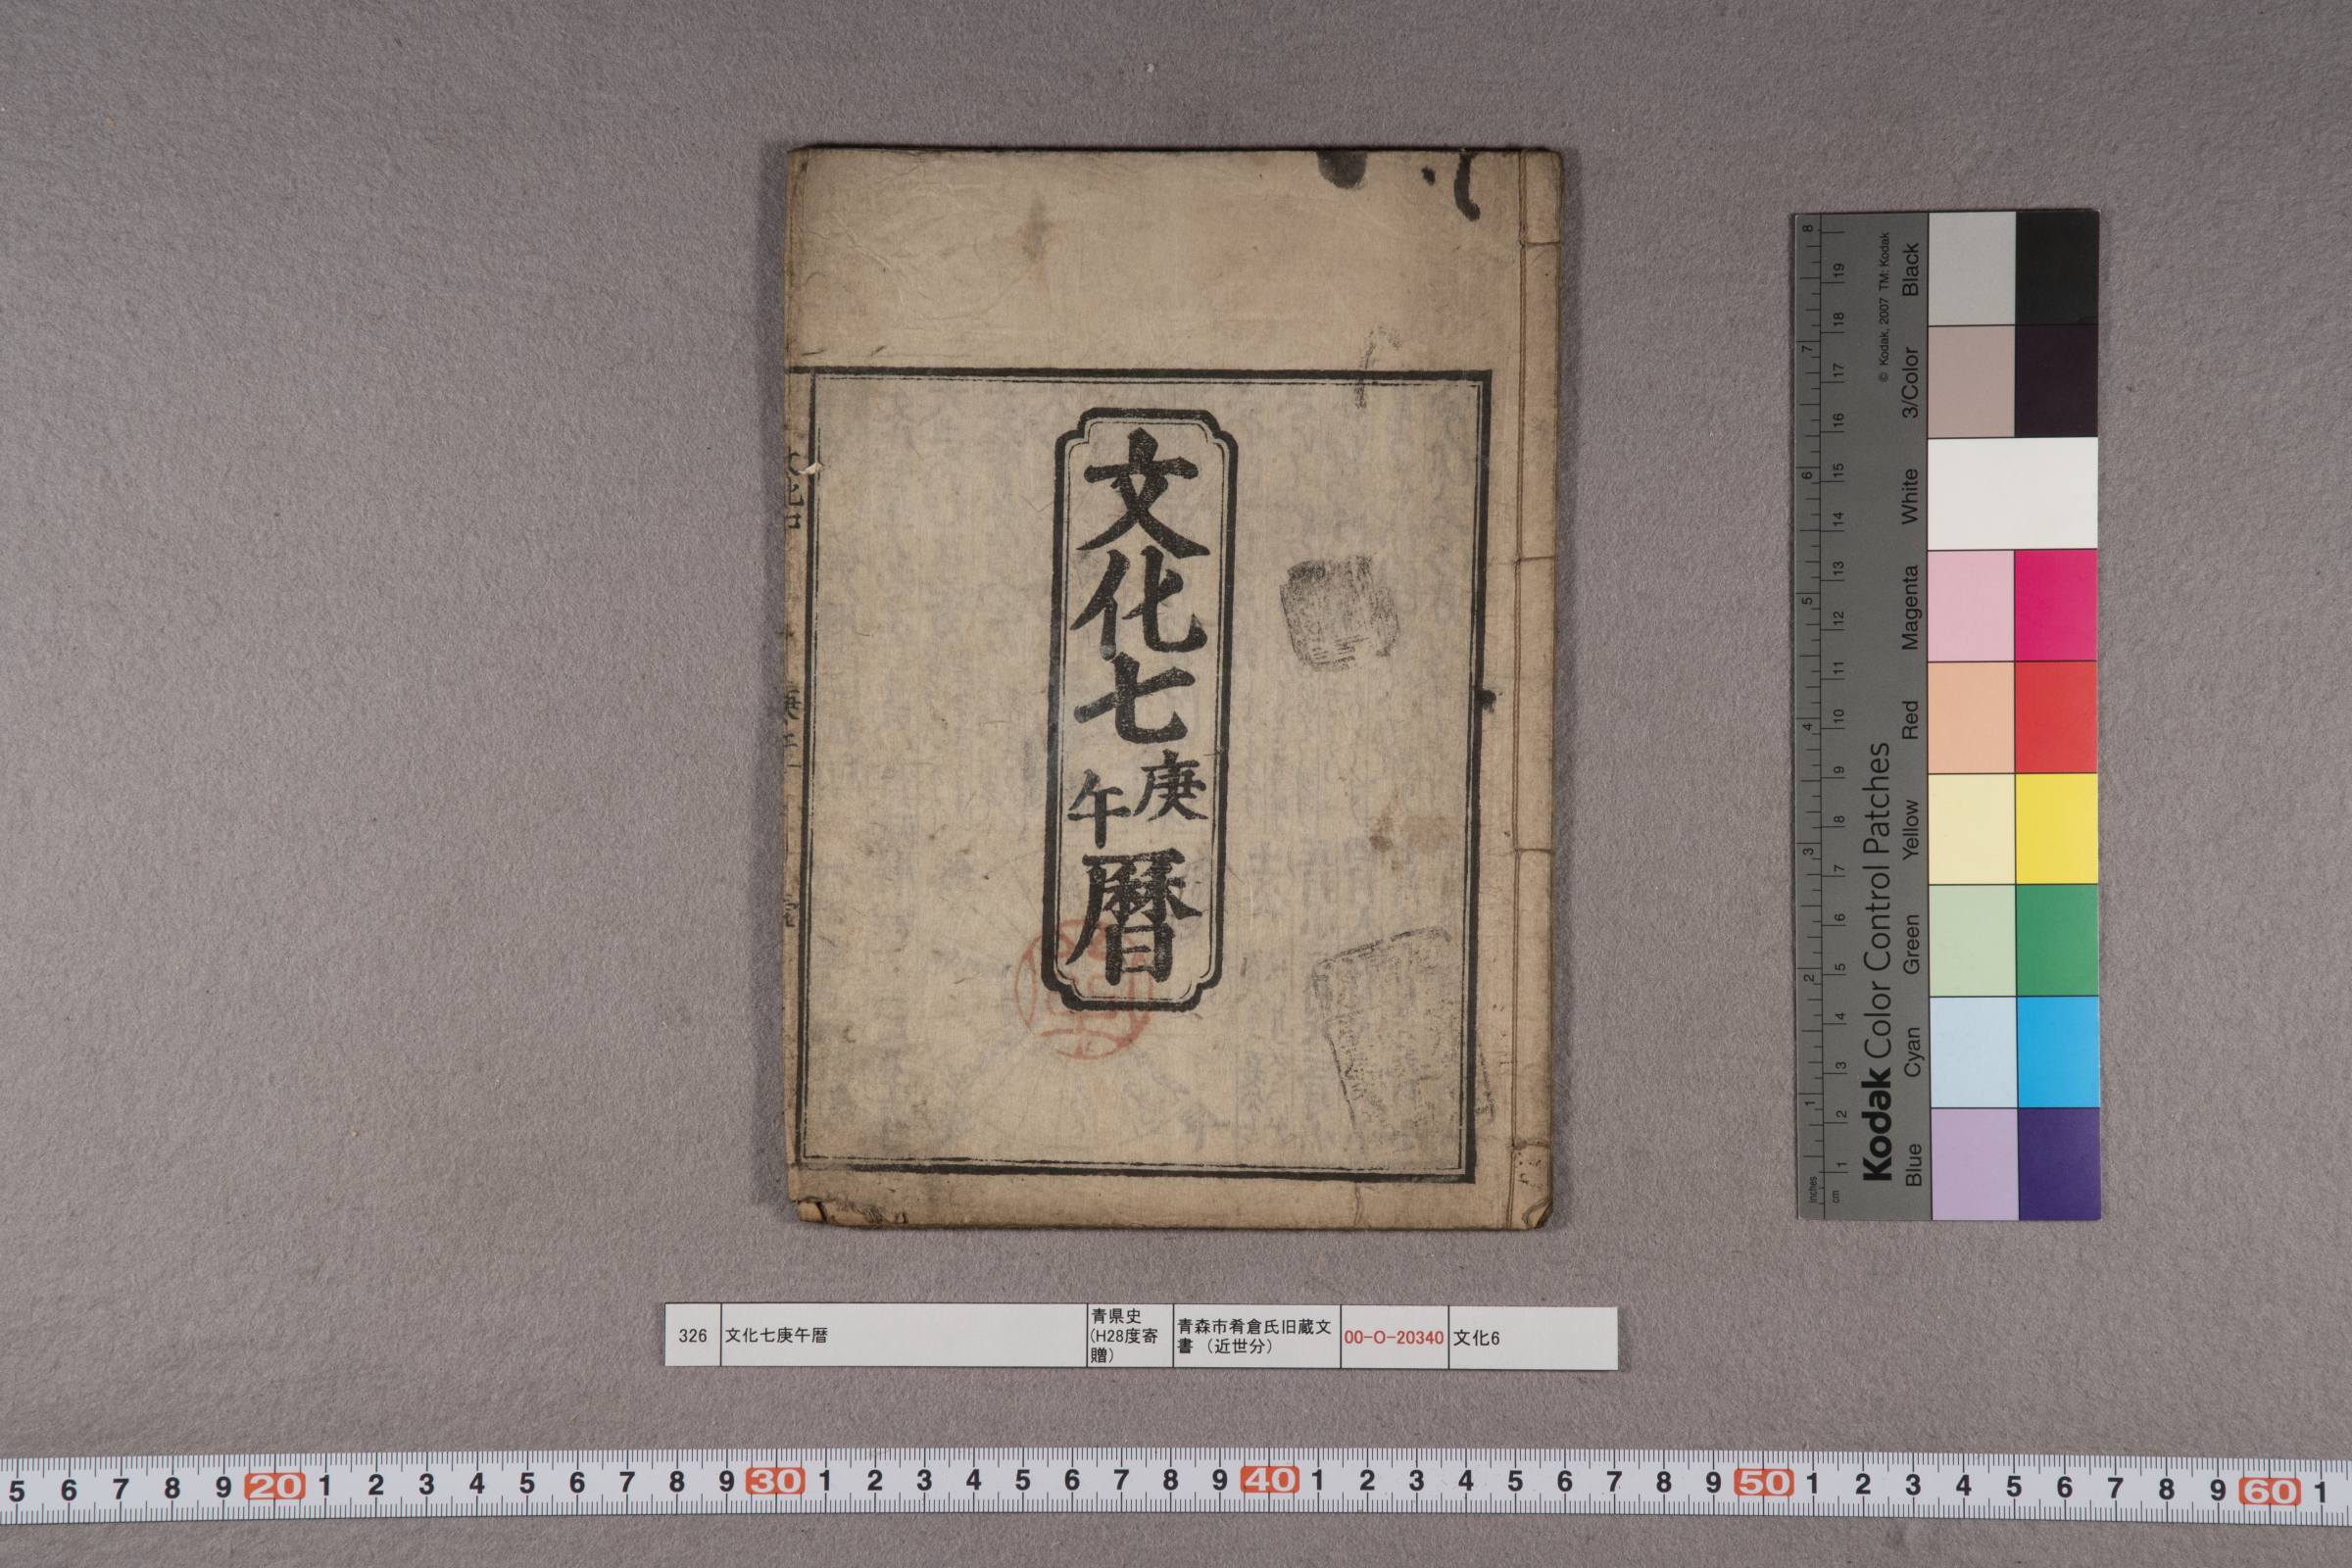 文化七庚午暦
326
文化七庚午暦
青県史
(H28度寄
贈)
青森市肴倉氏旧蔵文
書（近世分）
00-O-20340
文化6
© Kodak, 2007 TM: Kodak
Kodak Color Control Patches
Black
3/Color
White
Magenta
Red
Yellow
Green
Cyan
Blue
inches
8 7 6 5 4 3 2 1
cm
19 18 17 16 15 14 13 12 11 10 9 8 7 6 5 4 3 2 1
5 6 7 8 9 20 1 2 3 4 5 6 7 8 9 30 1 2 3 4 5 6 7 8 9 40 1 2 3 4 5 6 7 8 9 50 1 2 3 4 5 6 7 8 9 60 1